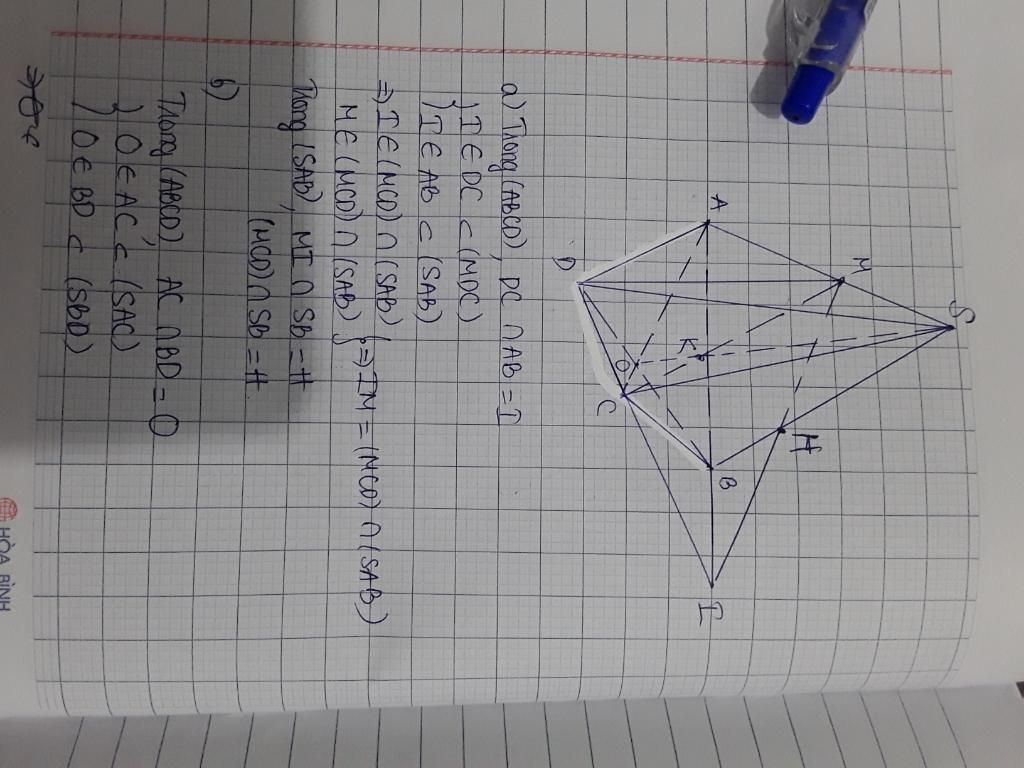 S
M
H
A
K
B
I
O
C
D
a) Trong (ABCD), DC ∩ AB = I
} I ∈ DC ⊂ (MDC)
} I ∈ AB ⊂ (SAB)
⇒ I ∈ (MCD) ∩ (SAB)
M ∈ (MCD) ∩ (SAB) } ⇒ IM = (MCD) ∩ (SAB)
Trong (SAB), MI ∩ SB = H
(MCD) ∩ SB = H
b)
Trong (ABCD), AC ∩ BD = O
} O ∈ AC ⊂ (SAC)
} O ∈ BD ⊂ (SBD)
HÒA BÌNH